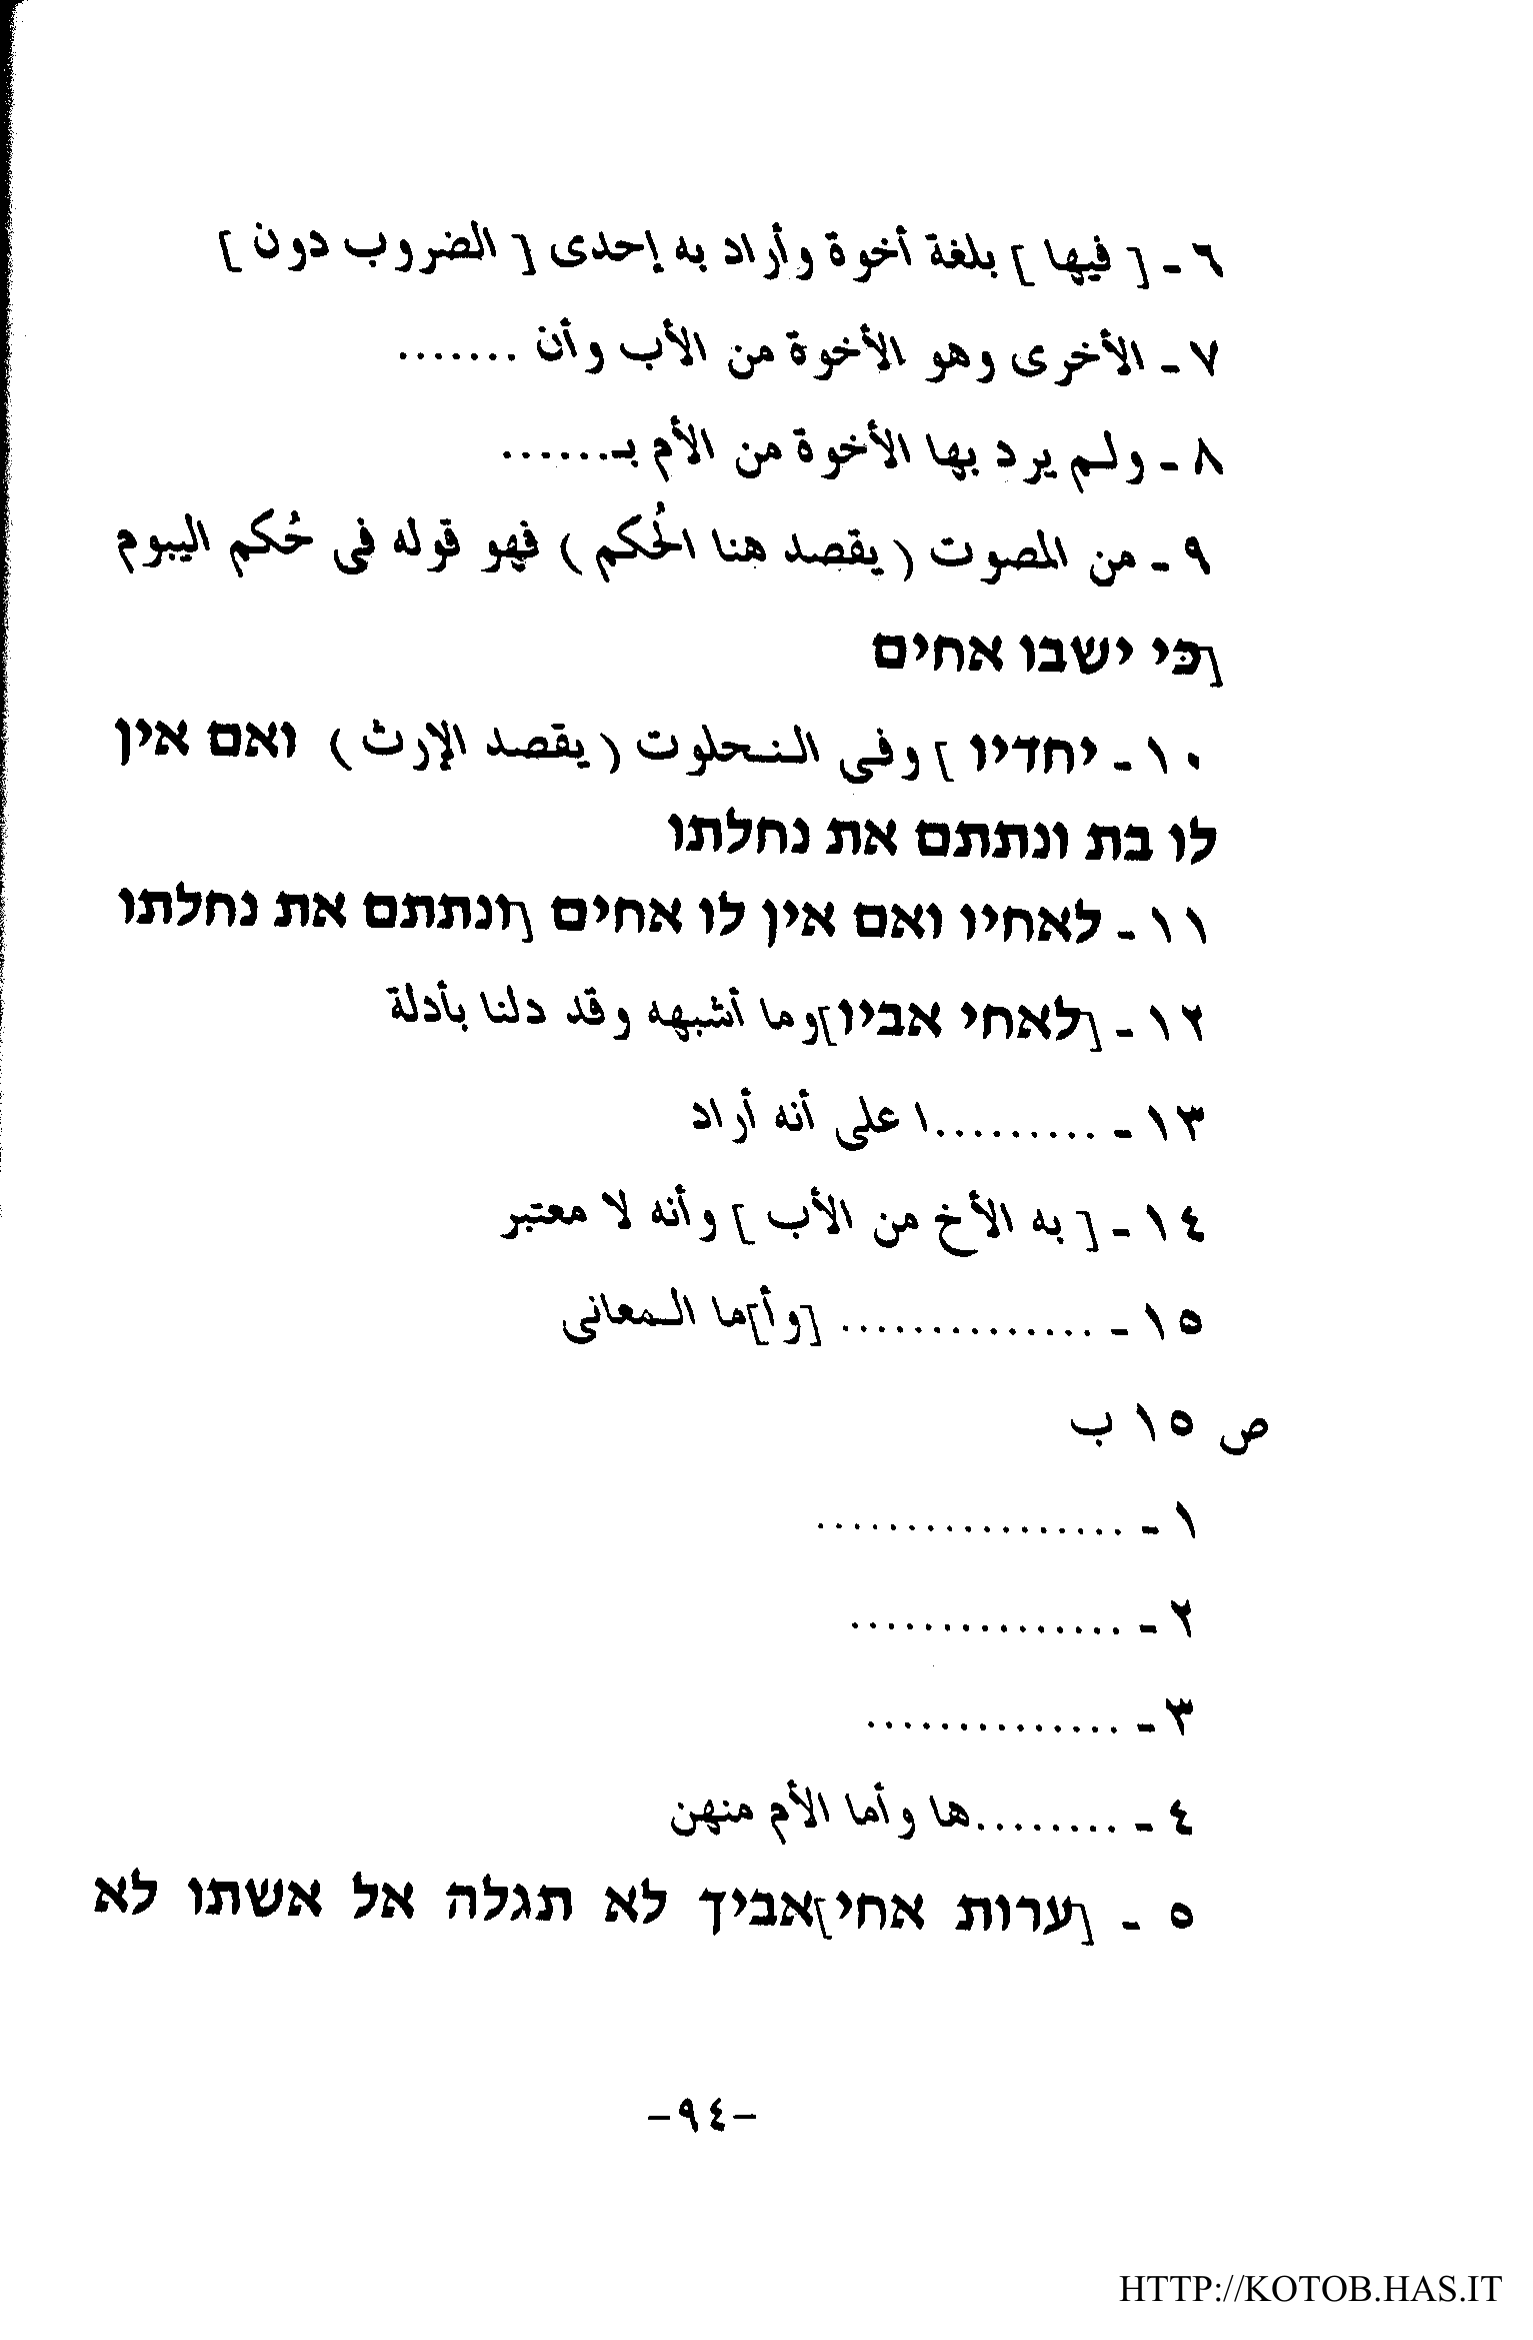 ٦ - [ فيها ] بلغة أخوة وأراد به إحدى [ الضروب دون ]
٧ - الأخرى وهو الأخوة من الأب وأن .......
٨ - ولم يرد بها الأخوة من الأم بـ......
٩ - من المصوت ( يقصد هنا الحُكم ) فهو قوله فى حُكم اليبوم
[כי ישבו אחים
١٠ - יחדיו ] وفى النحلوت ( يقصد الإرث ) ואם אין
לו בת ונתתם את נחלתו
١١ - לאחיו ואם אין לו אחים [ונתתם את נחלתו
١٢ - [לאחי אביו] وما أشبهه وقد دلنا بأدلة
١٣ - .........ا على أنه أراد
١٤ - [ به الأخ من الأب ] وأنه لا معتبر
١٥ - .............. [وأ]ما المعانى
ص ١٥ ب
١ - .................
٢ - ...............
٣ - ..............
٤ - ........ها وأما الأم منهن
٥ - [ערות אחי]אביך לא תגלה אל אשתו לא
-٩٤-
HTTP://KOTOB.HAS.IT